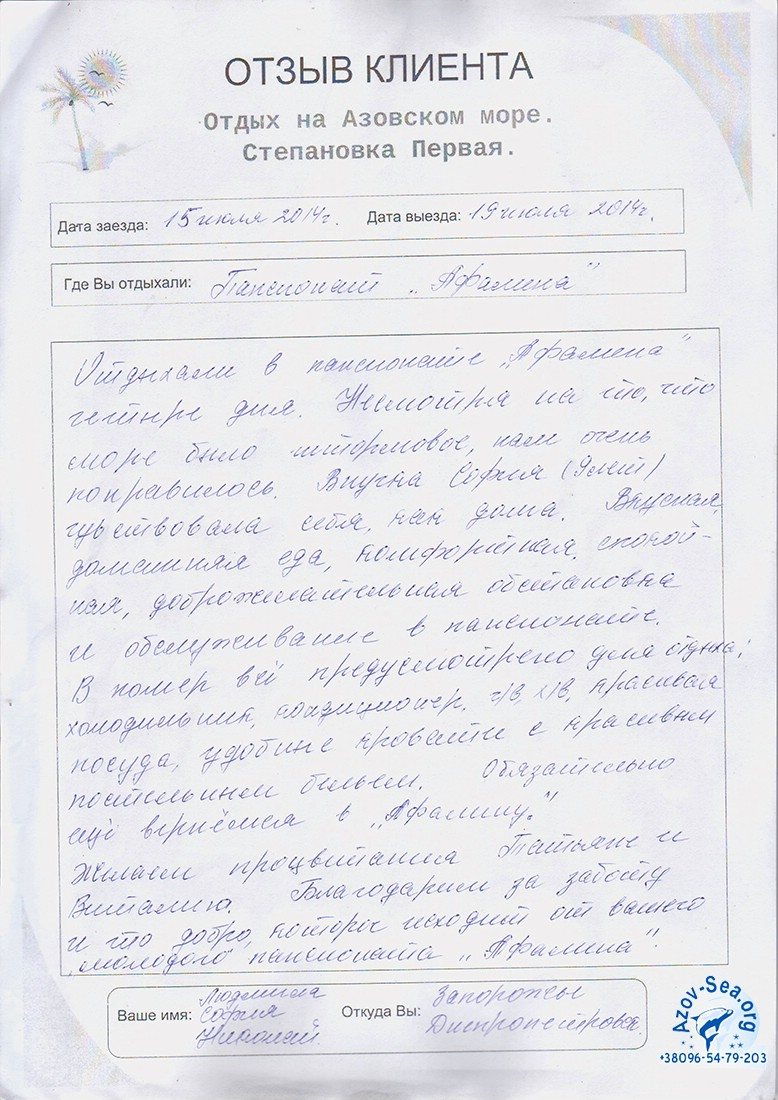 ОТЗЫВ КЛИЕНТА
Отдых на Азовском море.
Степановка Первая.
Дата заезда: 15 июля 2014г. Дата выезда: 19 июля 2014г.
Где Вы отдыхали: Пансионат „Афалина"
Отдыхали в пансионате „Афалина"
четыре дня. Несмотря на то, что
море было штормовое, нам очень
понравилось. Внучка София (9лет)
чувствовала себя, как дома. Вкусная,
домашняя еда, комфортная, спокой-
ная, доброжелательная обстановка
и обслуживание в пансионате.
В номер всё предусмотрено для отдыха:
холодильник, кондиционер, г/в, х/в, красивая
посуда, удобные кровати с красивым
постельным бельем. Обязательно
ещё вернёмся в „Афалину."
Желаем процветания Татьяне и
Виталию. Благодарим за заботу
и то добро, которое исходит от вашего
„молодого" пансионата „Афалина".
Ваше имя: Людмила
София
Николай
Откуда Вы: Запорожье
Днепропетровск
Azov-Sea.org
+38096-54-79-203